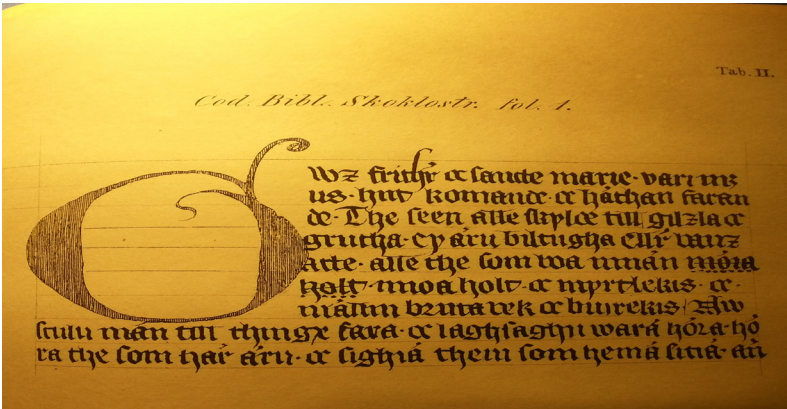 Tab. II.
Cod. Bibl. Skoklostr. fol. 1.
Gwz frithr oc sancte marie. vari mz
us. hit komande oc hæthan faran
de. The seen alle skylde till gilzla oc
grutha. Ey áru biltugha Ellr vanz
atte. alle the som wa innán móia
holt. moa holt. oc myrtlekis. oc.
mállin brutabek oc biurekis. Aw
sculu mán till thingx fara. oc laghsaghu wará hóra hó
ra the som hár áru. oc sighiá them som hemá sitiá. án